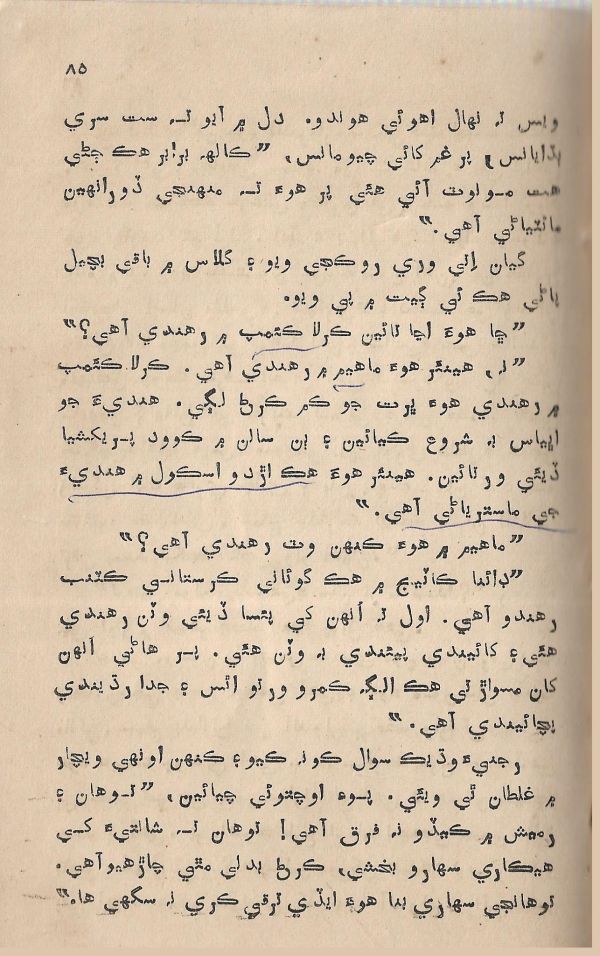 ٨٥
ويس تہ نھال اھوئي ھوندو. دل ۾ آيو تہ ست سري
ٻڌايانس، پر غم کائي چيومانس، ”ڪالھہ برابر ھڪ ڇڻي
ھت مون وٽ آئي ھئي پر ھوءَ تہ منھنجي ڏورانھين
مائٽياڻي آھي.“
گيان اِئي وري روڪجي ويو ۽ گلاس ۾ باقي بچيل
پاڻي ھڪ ئي ڳيت ۾ پي ويو.
”ڇا ھوءَ اڃا تائين ڪرلا ڪئمپ ۾ رھندي آھي؟“
”نہ، ھينئر ھوءَ ماھيم ۾ رھندي آھي. ڪرلا ڪئمپ
۾ رھندي ھوءَ ڀرت جو ڪم ڪرڻ لڳي. ھنديءَ جو
اڀياس بہ شروع ڪيائين ۽ ٻن سالن ۾ ڪووڊ پريڪشيا
ڏيئي ورتائين. ھينئر ھوءَ ھڪ اڙدو اسڪول ۾ ھنديءَ
جي ماسترياڻي آھي.“
”ماھيم ۾ ھوءَ ڪنھن وٽ رھندي آھي؟“
”ڊائنا ڪاٽيج ۾ ھڪ گوئاني ڪرستاني ڪٽنب
رھندو آھي. اول تہ اُنھن کي پئسا ڏيئي وٽن رھندي
ھئي ۽ کائيندي پيئندي بہ وٽن ھئي. پر ھاڻي اُنھن
کان مسواڙ تي ھڪ الڳ ڪمرو ورتو اٿس ۽ جدا رڌيندي
پچائيندي آھي.“
رجنيءَ وڌيڪ سوال ڪونہ ڪيو ۽ ڪنھن اونھي ويچار
۾ غلطان ٿي ويئي. پوءِ اوچتوئي چيائين، ”توھان ۽
رميش ۾ ڪيڏو نہ فرق آھي! توھان تہ شانتيءَ کي
ھيڪاري سھارو بخشي، ڪرڻ بدلي مٿي چاڙھيو آھي.
توھانجي سھاري بنا ھوءَ ايڏي ترقي ڪري نہ سگھي ھا.“